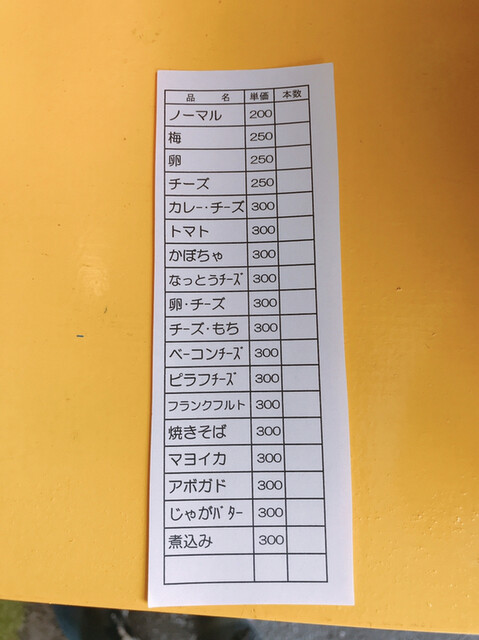 品 名 単価 本数
ノーマル 200
梅 250
卵 250
チーズ 250
カレー・チーズ 300
トマト 300
かぼちゃ 300
なっとうﾁｰｽﾞ 300
卵・チーズ 300
チーズ・もち 300
ベーコンﾁｰｽﾞ 300
ピラフﾁｰｽﾞ 300
フランクフルト 300
焼きそば 300
マヨイカ 300
アボガド 300
じゃがﾊﾞﾀｰ 300
煮込み 300